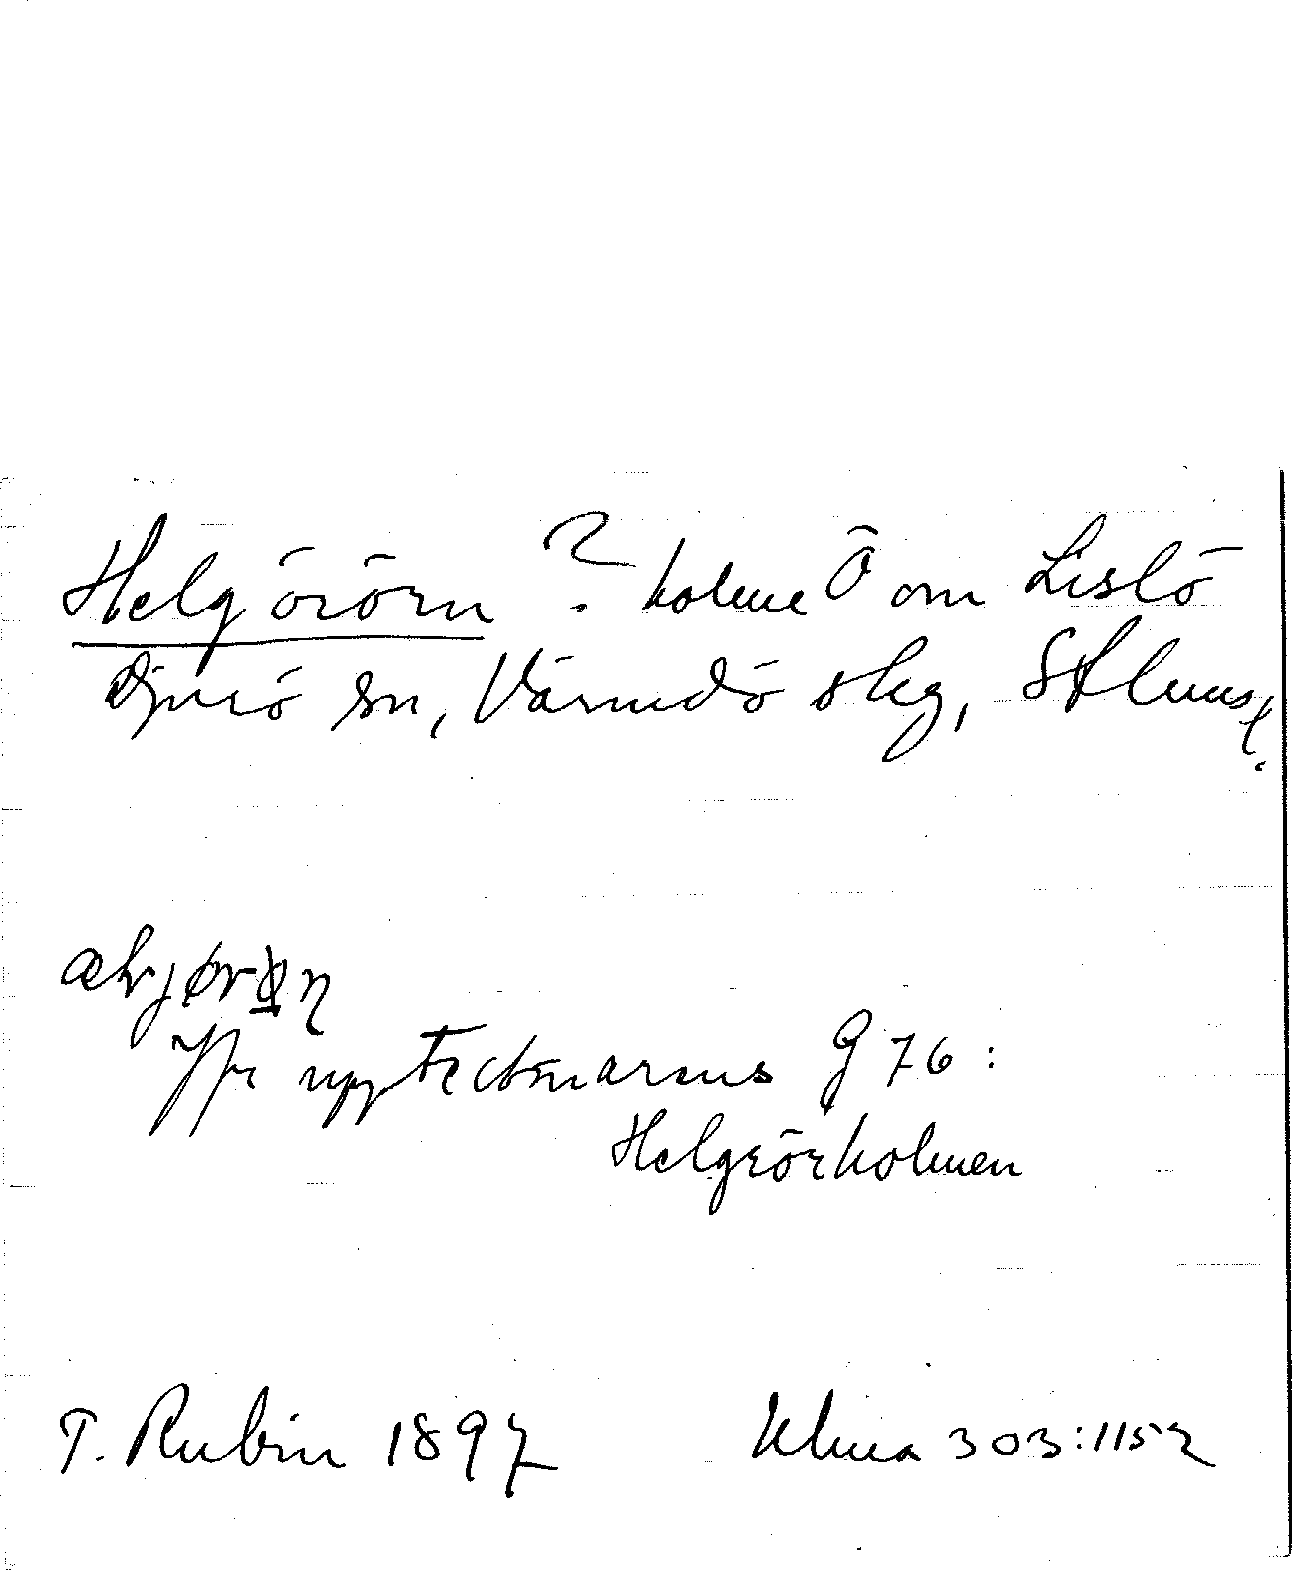 Helgörörn ? holme Ö om Lislö
Djurö sn, Värmdö skg, Sthlms l.
Jfr upptecknarens G 76:
Helgrörholmen
T. Rubin 1897 Ulma 303:1152